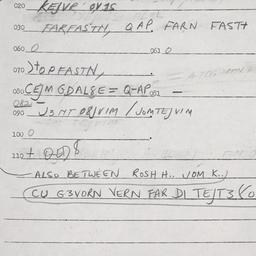 020 KEJVP. OY1S
030 FARFASTM, QAP, FARN FAST+
060 0 063 0
070 STOPFASTN,
080 CEJM GDAL8E = Q-AP 081 —
082
090 J3 MT OBJVIM / JOMTEJVIM
100 0
110 +
ALSO BETWEEN ROSH H.. JOM K..)
(CU G3VORN VERN FAR DI TEJT3